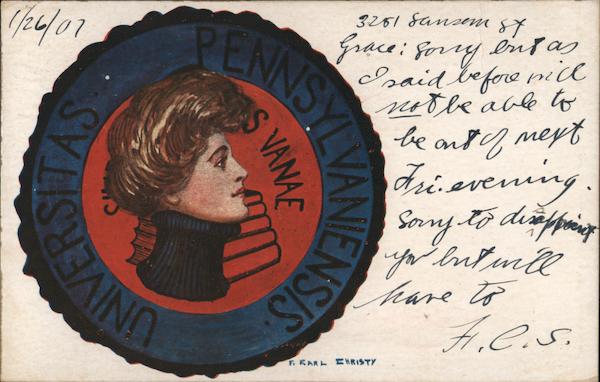 1/26/07
3201 Sansom St
Grace: Sorry but as
I said before will
not be able to
be out of next
Fri. evening.
Sorry to disappoint
you but will
have to
F. C. S.
UNIVERSITAS
PENNSYLVANIENSIS.
S VANAE
F. EARL CHRISTY